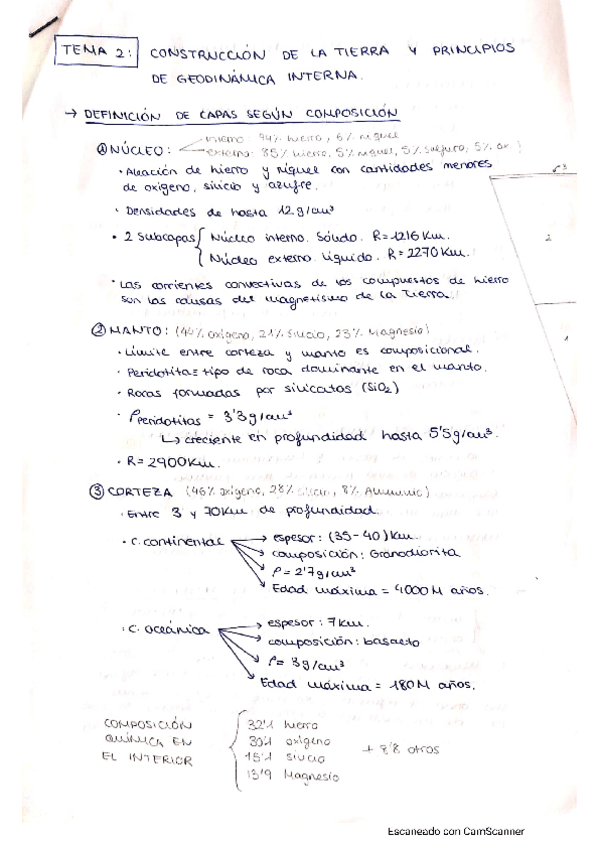 TEMA 2: CONSTRUCCIÓN DE LA TIERRA Y PRINCIPIOS
DE GEODINÁMICA INTERNA.
→ DEFINICIÓN DE CAPAS SEGÚN COMPOSICIÓN
① NÚCLEO: interno: 94% hierro, 6% níquel
externo: 85% hierro, 5% níquel, 5% sulfuro, 5% ox
· Aleación de hierro y níquel con cantidades menores
de oxígeno, silicio y azufre.
· Densidades de hasta 12g/cm³
· 2 subcapas { Núcleo interno. Sólido. R=1216 Km.
Núcleo externo. Líquido. R=2270 Km.
· Las corrientes convectivas de los compuestos de hierro
son las causas del magnetismo de la Tierra.
② MANTO: (44% oxígeno, 21% silicio, 23% Magnesio)
· Límite entre corteza y manto es composicional.
· Peridotita = tipo de roca dominante en el manto.
· Rocas formadas por silicatos (SiO₂)
· ρPeridotitas = 3'3g/cm³
↳ creciente en profundidad hasta 5'5g/cm³.
· R=2900Km.
③ CORTEZA (46% oxígeno, 28% silicio, 8% Aluminio)
· Entre 3 y 70Km de profundidad.
· C. continental → espesor: (35-40)Km.
→ composición: Granodiorita
→ ρ = 2'7g/cm³
→ Edad máxima = 4000M años.
· C. oceánica → espesor: 7 Km.
→ composición: basalto
→ ρ = 3g/cm³
→ Edad máxima = 180M años.
COMPOSICIÓN QUÍMICA EN EL INTERIOR { 32'1 hierro
30'1 oxígeno
15'1 silicio
13'9 Magnesio
+ 8'8 otros
3
2
1
Escaneado con CamScanner